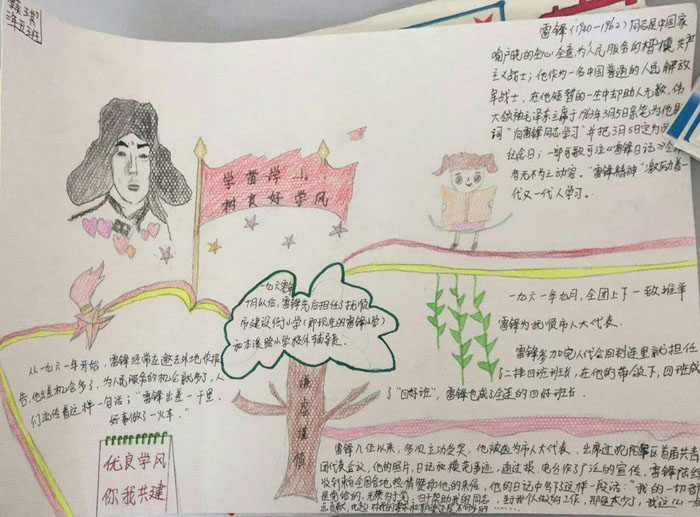 二年五班
雷锋(1940-1962)同志是中国家
喻户晓的全心全意为人民服务的楷模,共产
主义战士;他作为一名中国普通的人民解放
军战士,在他短暂的一生中却助人无数,伟
大领袖毛泽东主席于1963年3月5日亲笔为他题
词"向雷锋同志学习"并把3月5日定为
纪念日;一部可歌可泣《雷锋日记》
者无不为之动容。"雷锋精神"激励着一
代又一代人学习。
学雷锋
树良好学风
一九六
月以后,雷锋先后担任了抚顺
市建设街小学(即现在的雷锋小学)
和本溪路小学校外辅导员。
谦虚谨慎
一九六一年九月,全团上下一致推举
雷锋为抚顺市人大代表。
雷锋参加完人代会回到连里就担任
了二排四班班长,在他的带领下,四班成
了"四好班",雷锋也成了全连的四好班长
从一九六一年开始,雷锋经常应邀去外地作报
告,他出差机会多了,为人民服务的机会就多了,人
们流传着这样一句话:"雷锋出差一千里,
好事做了一火车。"
优良学风
你我共建
雷锋入伍以来,多次立功受奖,他被选为市人大代表,出席过沈阳军区首届共青
团代表会议,他的照片、日记和模范事迹,通过报、电台作了广泛的宣传,雷锋陆续
收到来自全国各地热情赞扬他的来信,他的日记中写了这样一段话:"我的一切都
是党给的,光荣归于党,归于帮助我的同志,